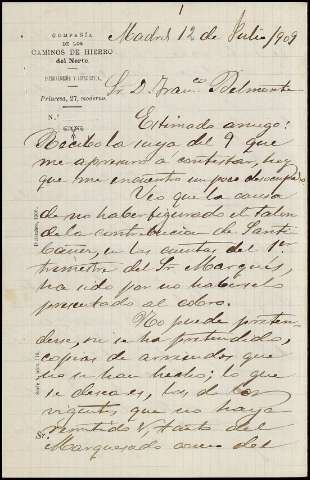 1
COMPAÑÍA
DE LOS
CAMINOS DE HIERRO
del Norte.
Princesa, 27, moderno.
N.º
Madrid 12 de Julio/909
Sr D. Franco Belmonte
Estimado amigo:
Recibo la suya del 9 que
me apresuro a contestar, hoy
que me encuentro un poco desocupado
Veo que la causa
de no haber figurado el talon
de la contribucion de Santi
en las cuentas del 1er
trimestre del Sr Marqués,
ha sido por no haberselo
presentado al cobro.
No puede preten-
derse, ni se ha pretendido,
copias de arriendos que
no se han hecho; lo que
se desea es, los de los
vigentes que no haya
remitido V, tanto del
Sr.
Marquesado como del